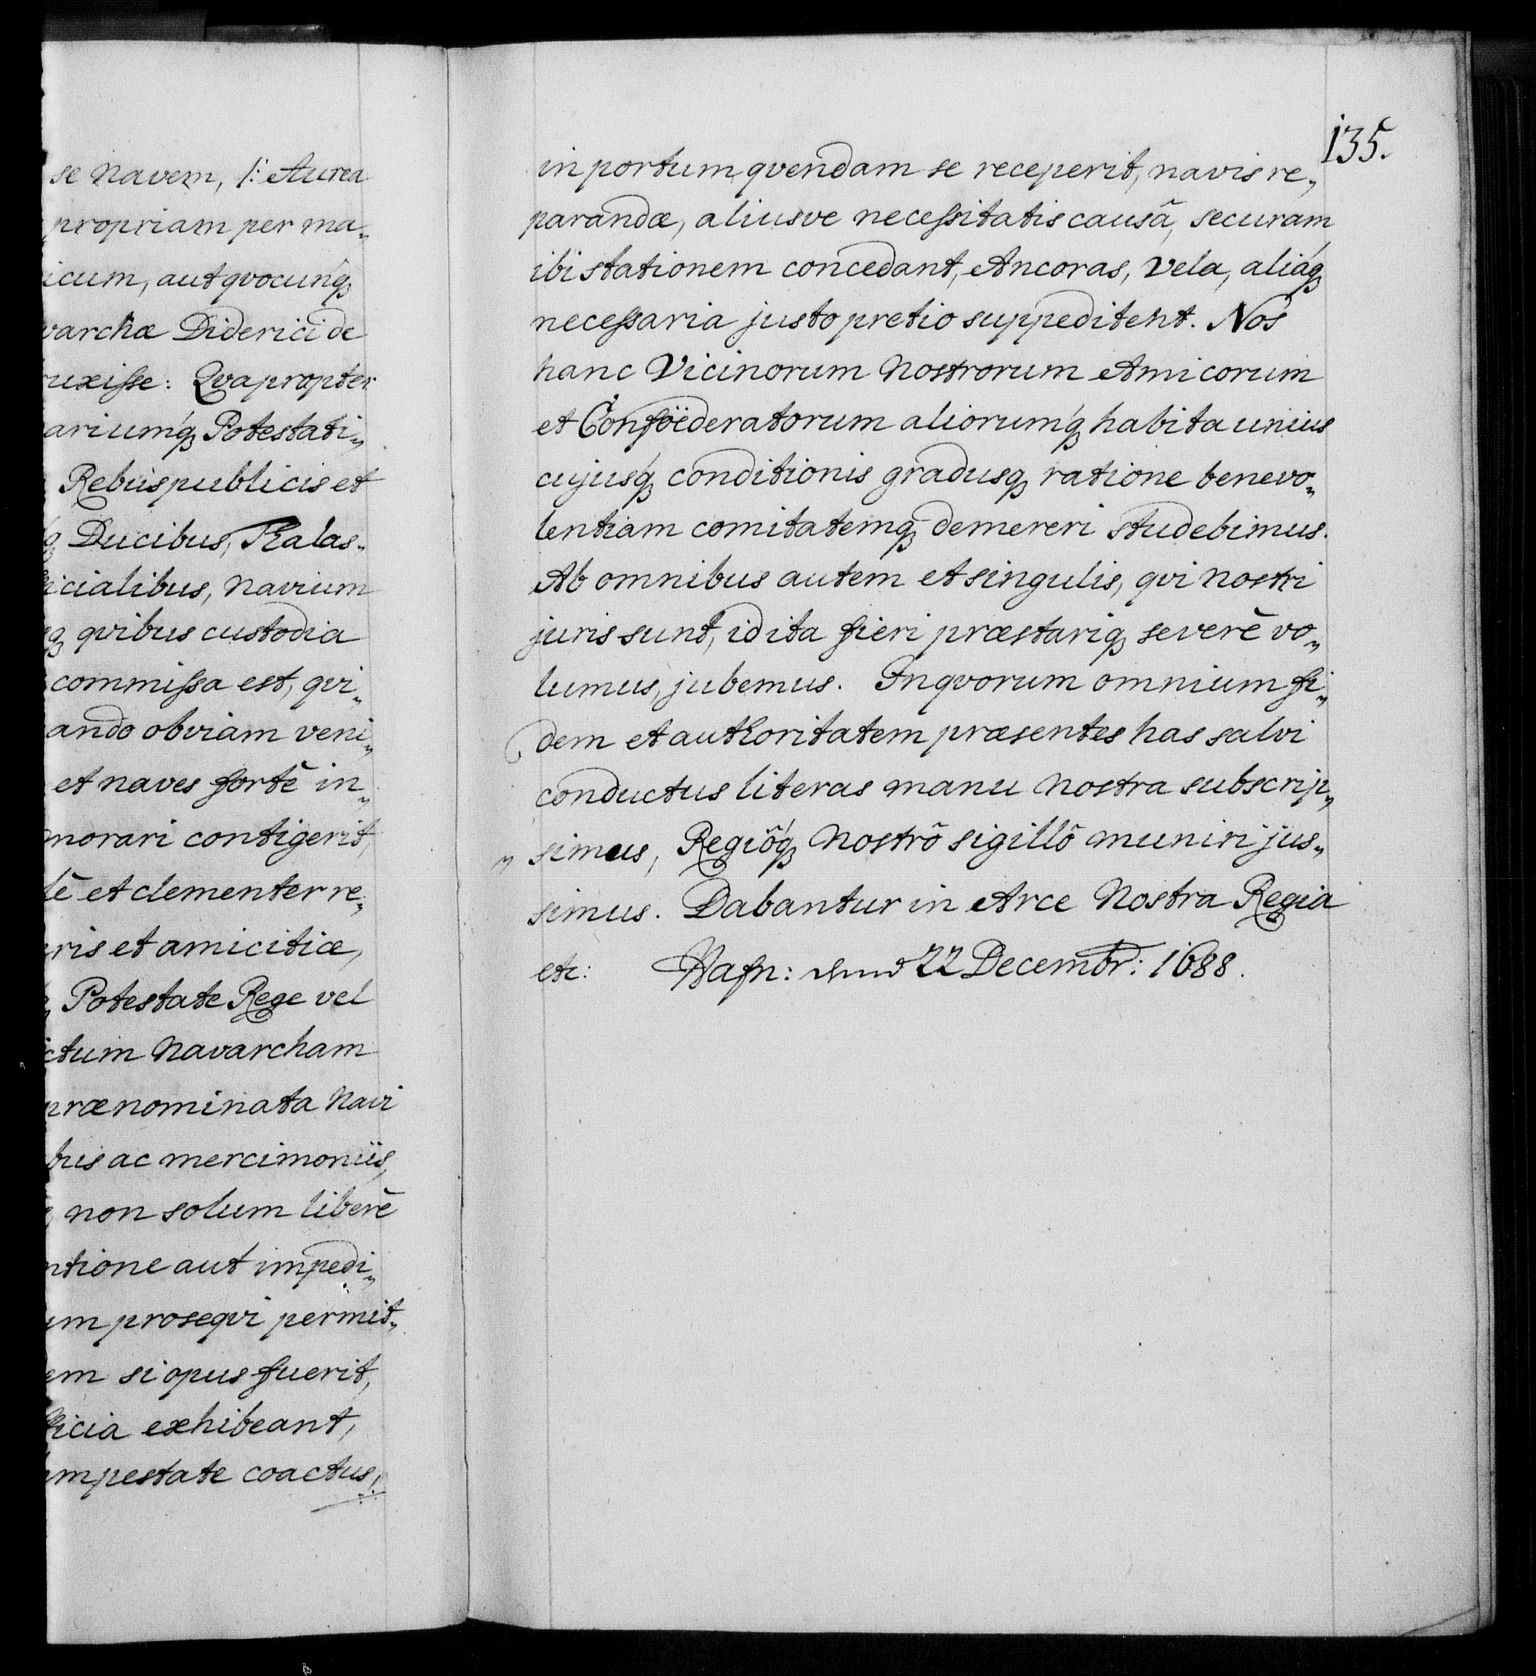 se navem, /: Aurea
propriam per ma„
icum, aut qvocunq́
varchæ Diderici de
uxisse: Qvapropter
ariumq́ Potestati„
Rebuspublicis et
q Ducibus, Thalas„
icialibus, navium
q qvibus custodia
commissa est, qvi„
ando obviam veni„
et naves fortè in„
morari contigerit,
lè et clementer re„
ris et amicitiæ,
Potestate Rege vel
ctum Navarcham
prænominata Navi
bus ac mercimoniis,
non solum liberè
ntione aut impedi„
um proseqvi permit„
em si opus fuerit,
ficia exhibeant,
mpestate coactus,
135.
in portum qvendam se receperit, navis re„
parandæ, aliusve necessitatis causâ, securam
ibi stationem concedant, Ancoras, Vela, aliaq́
necessaria justo pretio suppeditent. Nos
hanc Vicinorum Nostrorum Amicorum
et Confoëderatorum aliorumq́ habita unius
cujusq́ conditionis gradusq ratione benevo„
lentiam comitatemq demereri studebimus.
Ab omnibus autem et singulis, qvi nostri
juris sunt, id ita fieri præstariq severè vo„
lumus, jubemus. In qvorum omnium fi„
dem et authoritatem præsentes has salvi
conductus literas manu Nostra subscrip„
simus, Regiôq́ Nostrô sigillô muniri jus„
simus. Dabantur in Arce Nostra Regia
etc: Hafn: 22 Decembr: 1688.